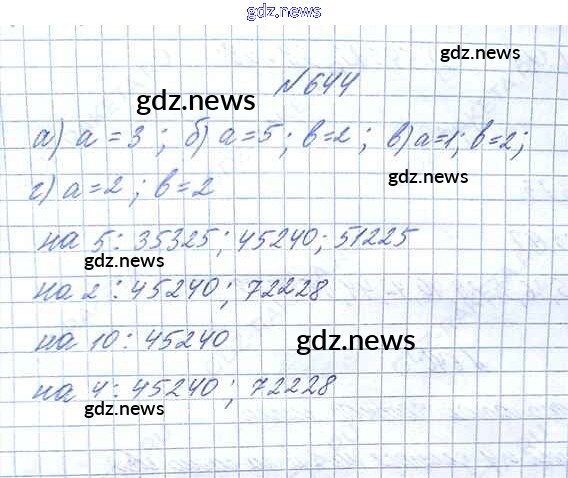 gdz.news
gdz.news
№644
gdz.news
а) a=3; б) a=5; b=2; в) a=1; b=2;
gdz.news
г) a=2; b=2
на 5: 35325; 45240; 51225
gdz.news
на 2: 45240; 72228
на 10: 45240
gdz.news
на 4: 45240; 72228
gdz.news